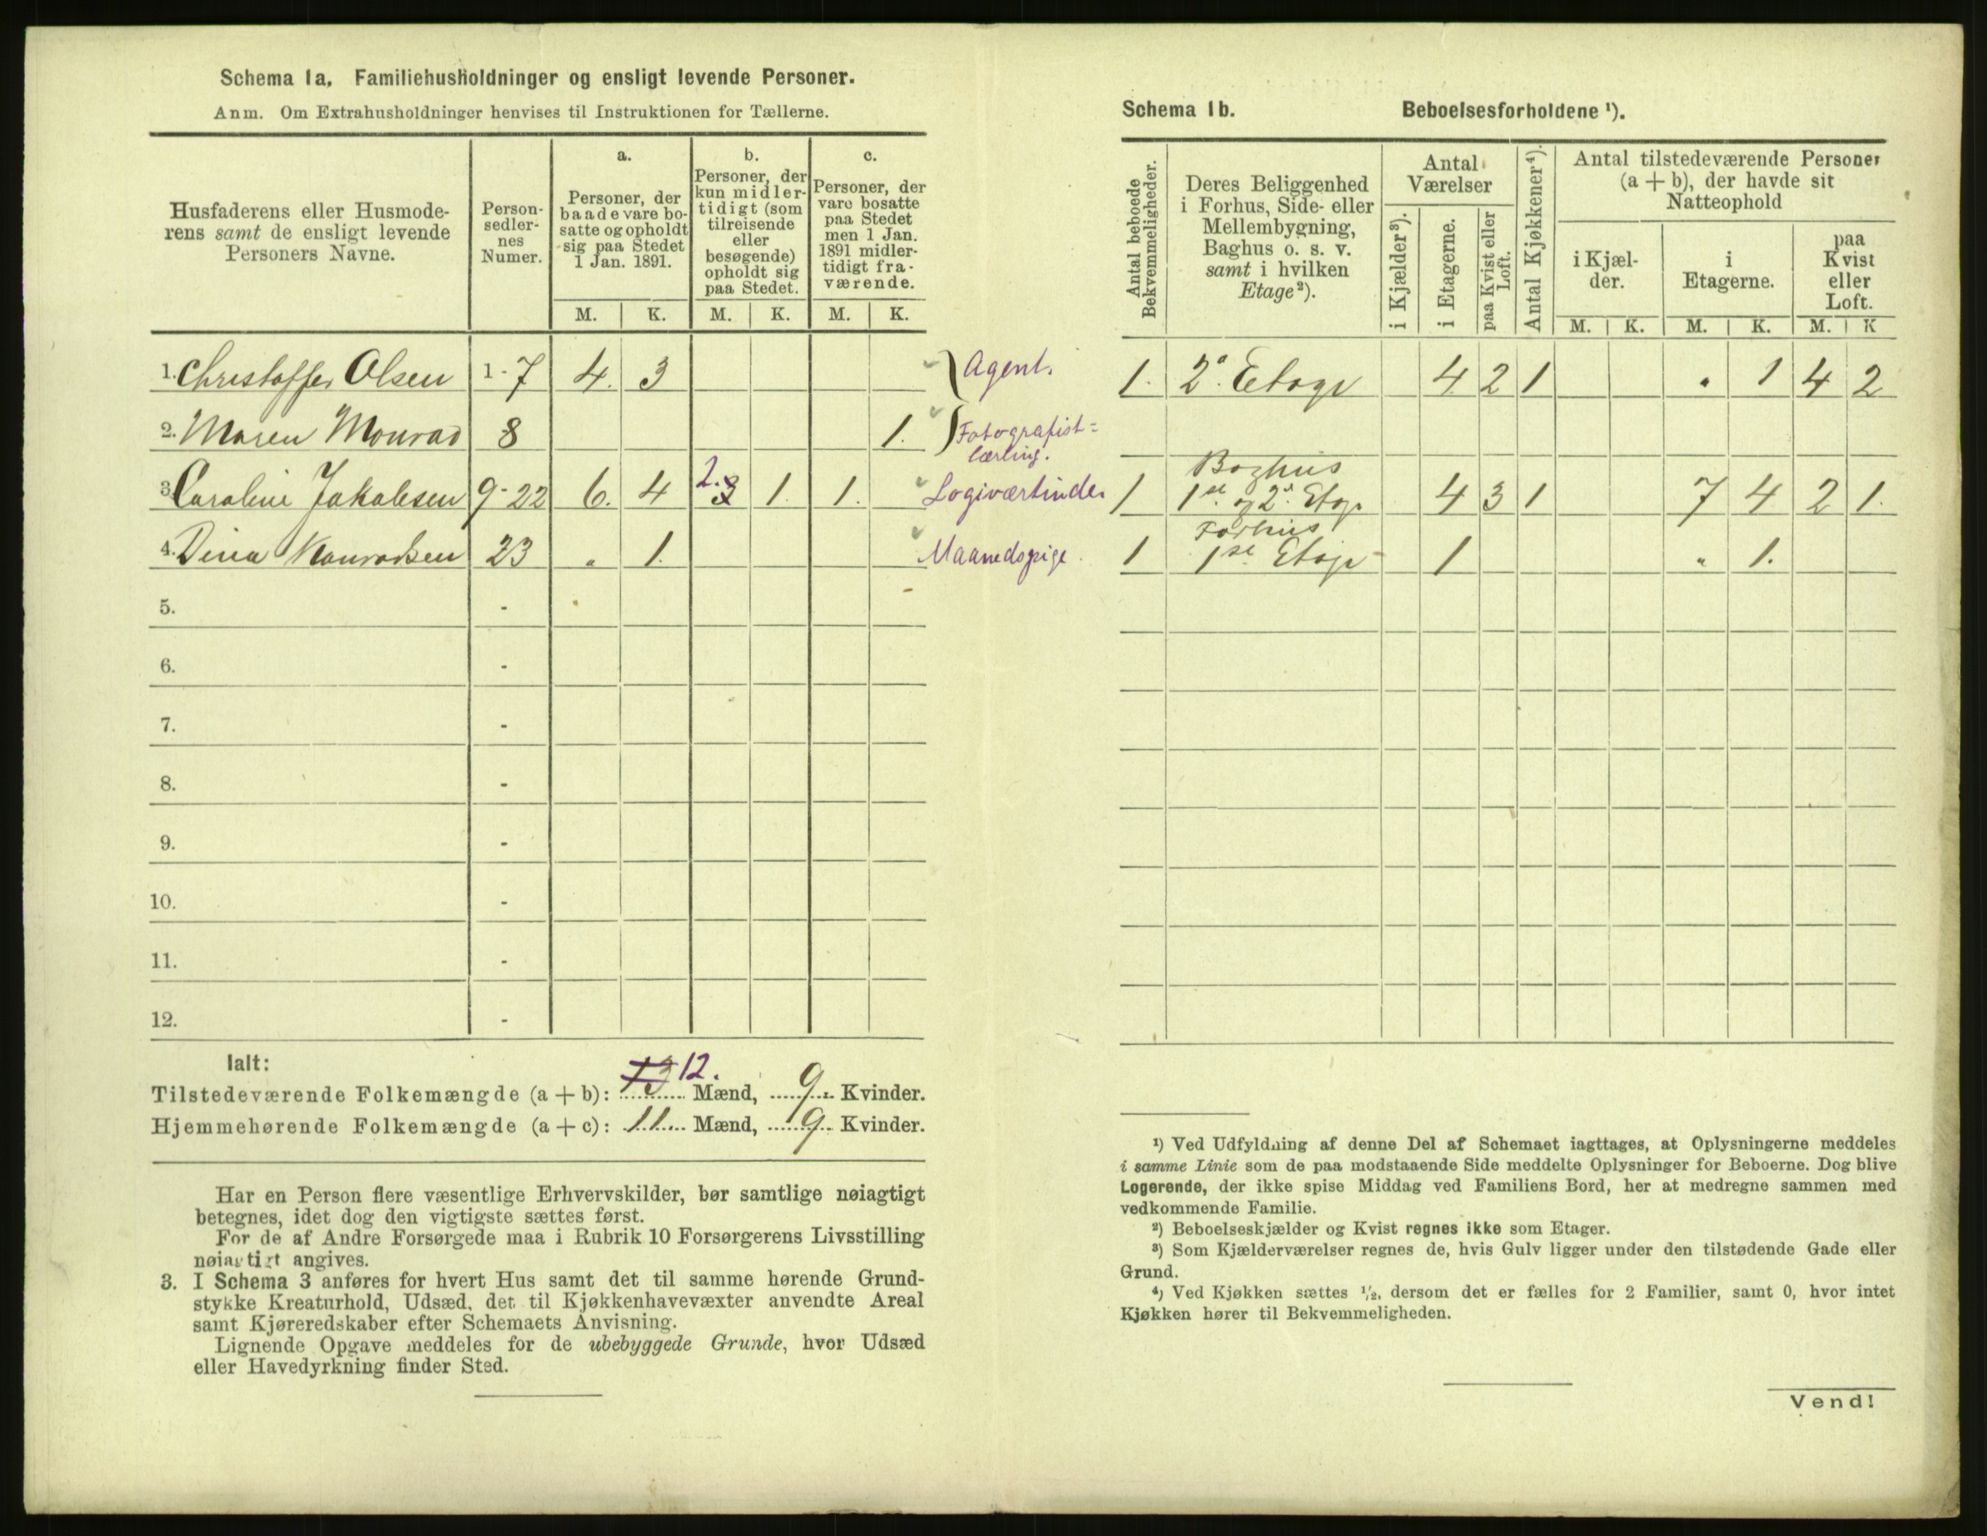 Schema 1a. Familiehusholdninger og ensligt levende Personer.
Anm. Om Extrahusholdninger henvises til Instruktionen for Tællerne.
Husfaderens eller Husmode-
rens samt de ensligt levende
Personers Navne.
Person-
sedler-
nes
Numer.
a.
Personer, der
baade vare bo-
satte og opholdt
sig paa Stedet
1 Jan. 1891.
b.
Personer, der
kun midler-
tidigt (som
tilreisende
eller
besøgende)
opholdt sig
paa Stedet.
c.
Personer, der
vare bosatte
paa Stedet
men 1 Jan.
1891 midler-
tidigt fra-
værende.
M. K. M. K. M. K.
1. Christoffer Olsen 1-7 4. 3 Agent.
2. Maren Monrad 8 1. Fotografist=
lærling.
3. Caroline Jakobsen 9-22 6. 4 2. 3 1. 1. Logiværtinde
4. Dina Konradsen 23 " 1. Maanedspige.
5. -
6. -
7. -
8. -
9. -
10. -
11. -
12. -
Ialt:
Tilstedeværende Folkemængde (a + b): 13 12. Mænd, 9 Kvinder.
Hjemmehørende Folkemængde (a + c): 11. Mænd, 9 Kvinder.
Har en Person flere væsentlige Erhvervskilder, bør samtlige nøiagtigt
betegnes, idet dog den vigtigste sættes først.
For de af Andre Forsørgede maa i Rubrik 10 Forsørgerens Livsstilling
nøiagtigt angives.
3. I Schema 3 anføres for hvert Hus samt det til samme hørende Grund-
stykke Kreaturhold, Udsæd, det til Kjøkkenhavevæxter anvendte Areal
samt Kjøreredskaber efter Schemaets Anvisning.
Lignende Opgave meddeles for de ubebyggede Grunde, hvor Udsæd
eller Havedyrkning finder Sted.
Schema 1b. Beboelsesforholdene ¹).
Antal beboede
Bekvemmeligheder.
Deres Beliggenhed
i Forhus, Side- eller
Mellembygning,
Baghus o. s. v.
samt i hvilken
Etage²).
Antal
Værelser
i Kjælder³).
i Etagerne.
paa Kvist eller
Loft.
Antal Kjøkkener⁴).
Antal tilstedeværende Personer
(a + b), der havde sit
Natteophold
i Kjæl-
der.
i
Etagerne.
paa
Kvist
eller
Loft.
M. K. M. K. M. K
1. 2. Etage 4 2 1 " 1 4 2
Baghus
1 1ste og 2. Etage 4 3 1 7 4 2 1.
Forhus
1 1ste Etage 1 " 1.
¹) Ved Udfyldning af denne Del af Schemaet iagttages, at Oplysningerne meddeles
i samme Linie som de paa modstaaende Side meddelte Oplysninger for Beboerne. Dog blive
Logerende, der ikke spise Middag ved Familiens Bord, her at medregne sammen med
vedkommende Familie.
²) Beboelseskjælder og Kvist regnes ikke som Etager.
³) Som Kjælderværelser regnes de, hvis Gulv ligger under den tilstødende Gade eller
Grund.
⁴) Ved Kjøkken sættes ¹/₂, dersom det er fælles for 2 Familier, samt 0, hvor intet
Kjøkken hører til Bekvemmeligheden.
Vend!